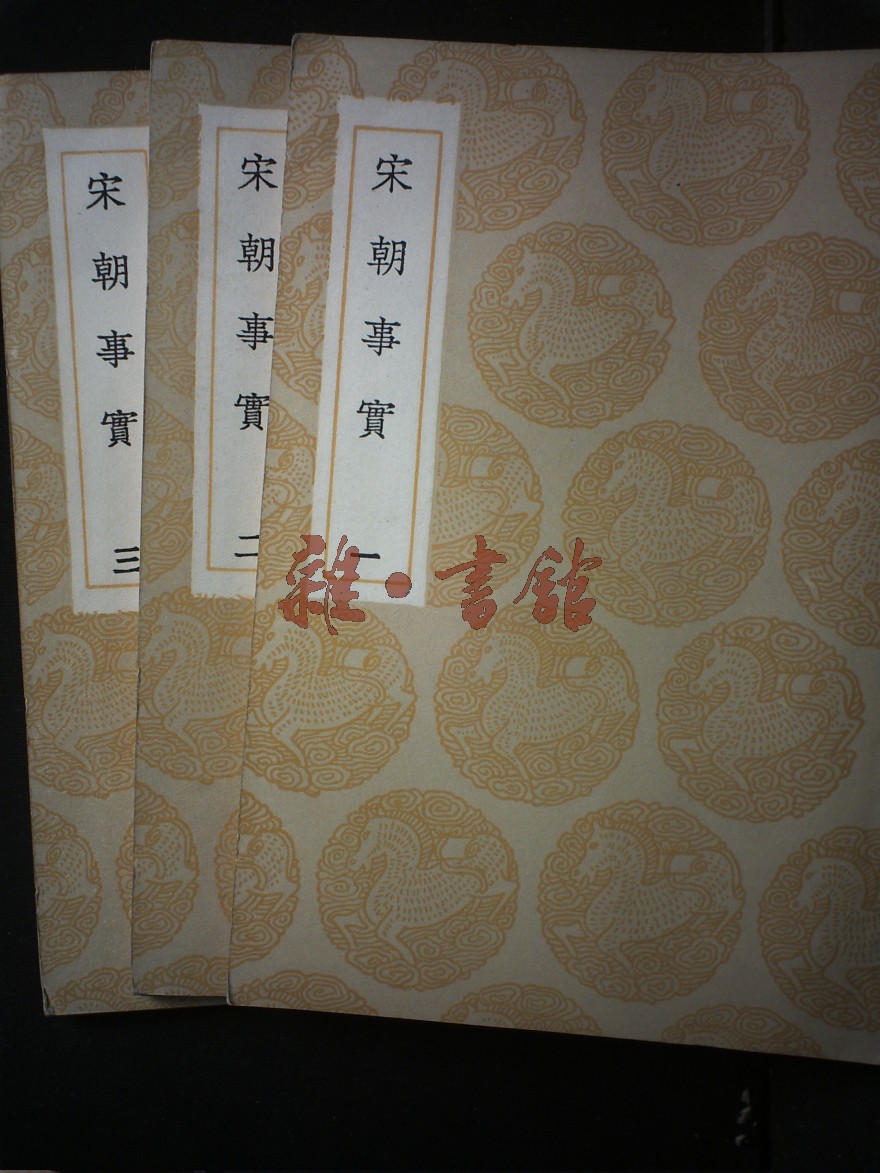 宋朝事實 一
宋朝事實 二
宋朝事實 三
雜·書館